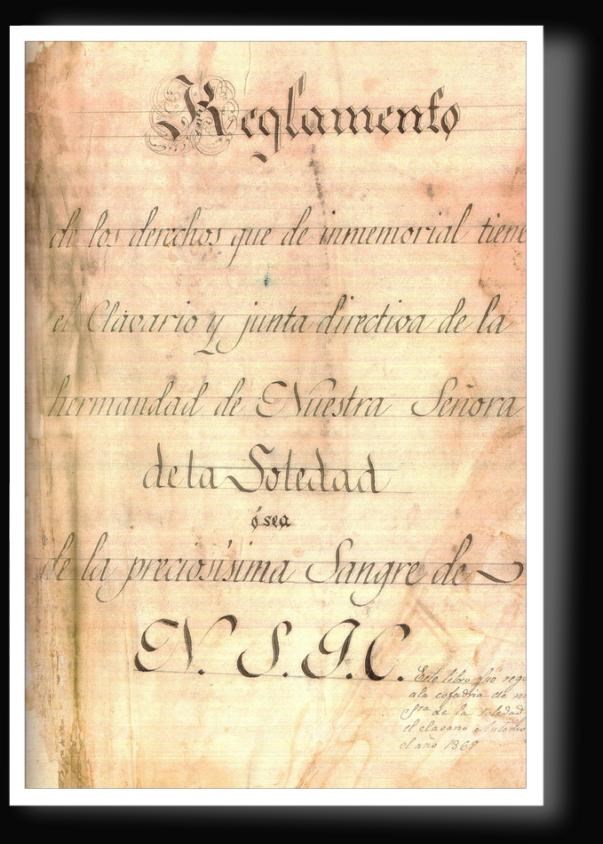 Reglamento
de los derechos que de inmemorial tiene
el Clavario y junta directiva de la
hermandad de Nuestra Señora
de la Soledad
ó sea
de la preciosísima Sangre de
N. S. J. C.
Este libro fué reg
a la cofadria de n
Sra de la soledad
el clavario Antonio
el año 1861